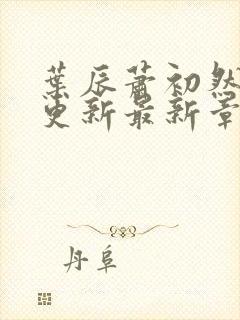 葉辰蕭初然
更新最新章
丹阜